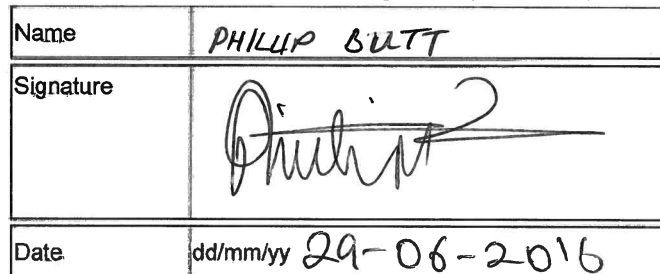 Name PHILLIP BUTT
Signature
Date dd/mm/yy 29-06-2016